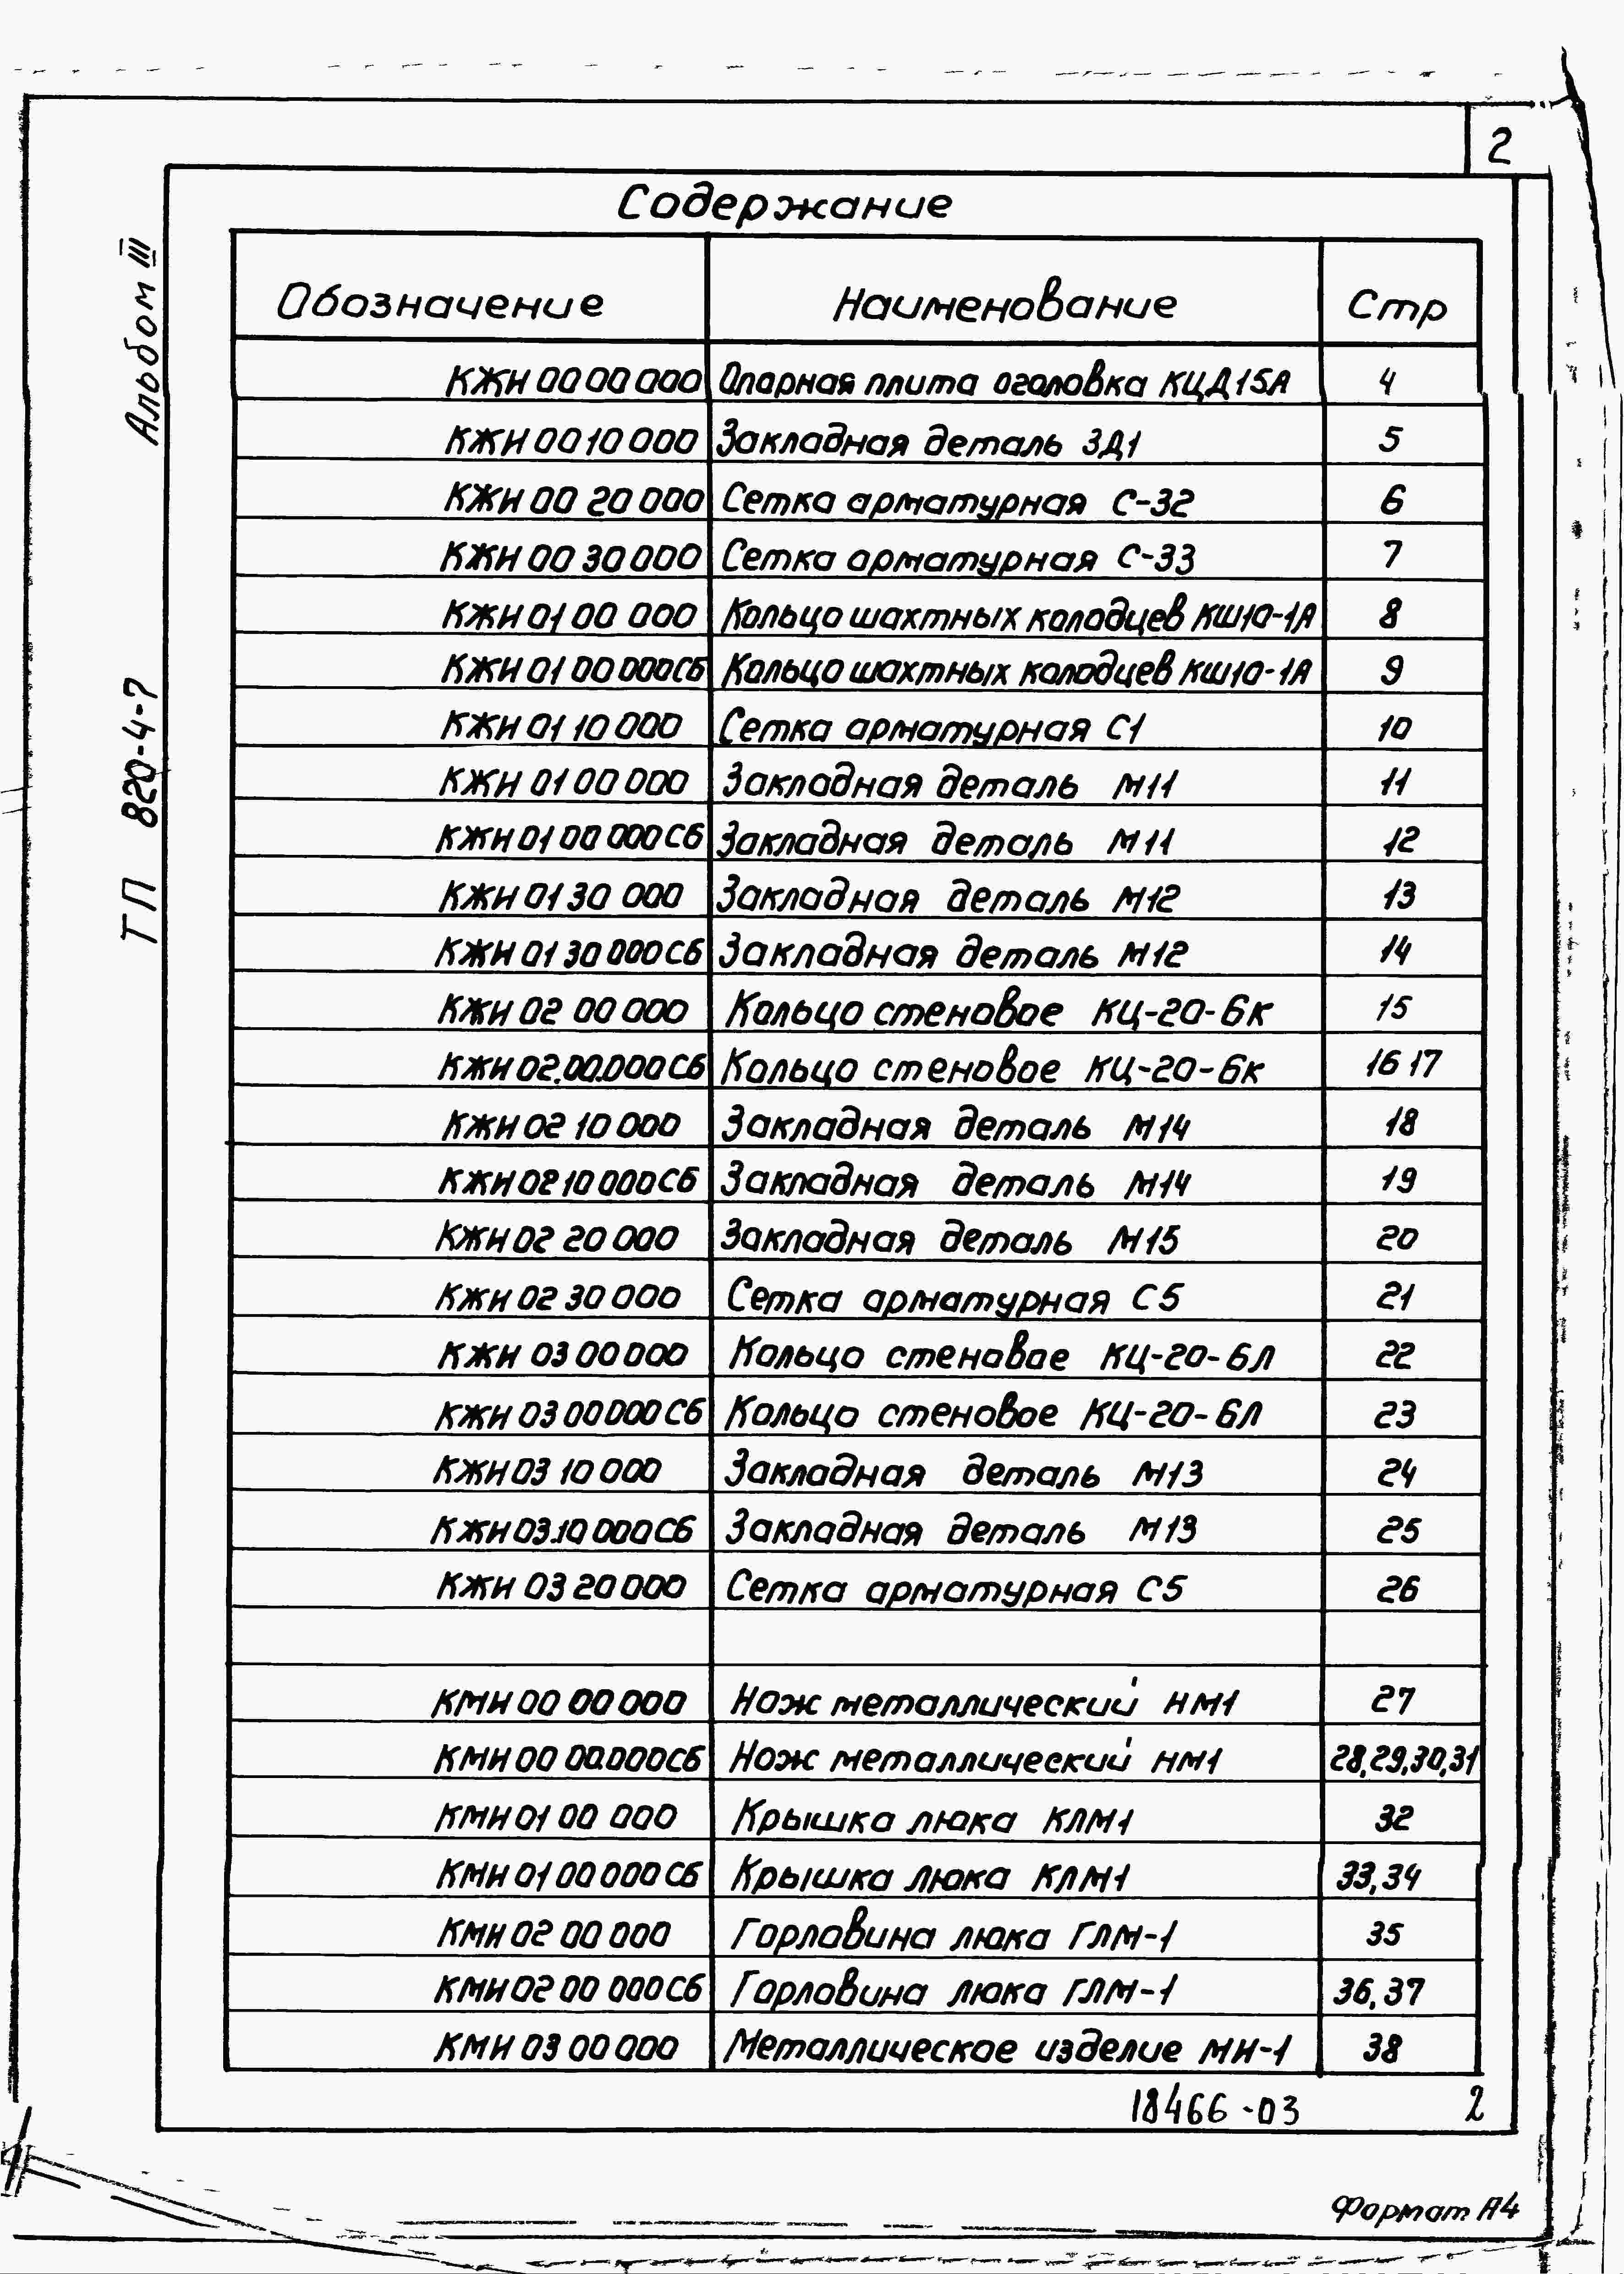 2
Альбом III
ТП 820-4-7
Содержание
Обозначение Наименование Стр
КЖИ 00 00 000 Опорная плита оголовка КЦД15А 4
КЖИ 00 10 000 Закладная деталь ЗД1 5
КЖИ 00 20 000 Сетка арматурная С-32 6
КЖИ 00 30 000 Сетка арматурная С-33 7
КЖИ 01 00 000 Кольцо шахтных колодцев КШ10-1А 8
КЖИ 01 00 000СБ Кольцо шахтных колодцев КШ10-1А 9
КЖИ 01 10 000 Сетка арматурная С1 10
КЖИ 01 00 000 Закладная деталь М11 11
КЖИ 01 00 000СБ Закладная деталь М11 12
КЖИ 01 30 000 Закладная деталь М12 13
КЖИ 01 30 000СБ Закладная деталь М12 14
КЖИ 02 00 000 Кольцо стеновое КЦ-20-6к 15
КЖИ 02.00.000СБ Кольцо стеновое КЦ-20-6к 16 17
КЖИ 02 10 000 Закладная деталь М14 18
КЖИ 02 10 000СБ Закладная деталь М14 19
КЖИ 02 20 000 Закладная деталь М15 20
КЖИ 02 30 000 Сетка арматурная С5 21
КЖИ 03 00 000 Кольцо стеновое КЦ-20-6Л 22
КЖИ 03 00 000СБ Кольцо стеновое КЦ-20-6Л 23
КЖИ 03 10 000 Закладная деталь М13 24
КЖИ 03.10 000СБ Закладная деталь М13 25
КЖИ 03 20 000 Сетка арматурная С5 26
КМИ 00 00 000 Нож металлический НМ1 27
КМИ 00 00.000СБ Нож металлический НМ1 28,29,30,31
КМИ 01 00 000 Крышка люка КЛМ1 32
КМИ 01 00 000СБ Крышка люка КЛМ1 33,34
КМИ 02 00 000 Горловина люка ГЛМ-1 35
КМИ 02 00 000СБ Горловина люка ГЛМ-1 36,37
КМИ 03 00 000 Металлическое изделие МИ-1 38
18466-03 2
Формат А4